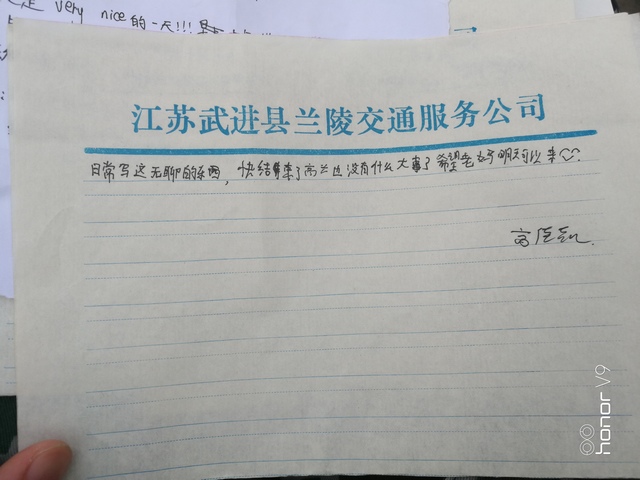 是 very nice 的一天!!!
江苏武进县兰陵交通服务公司
日常写这无聊的东西,快结束了高兰也没有什么大事了希望 明天可以来
高
honor V9